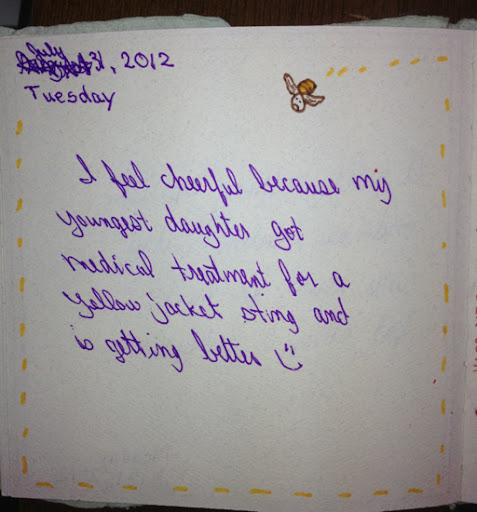 July 31, 2012
Tuesday
I feel cheerful because my
youngest daughter got
medical treatment for a
yellow jacket sting and
is getting better